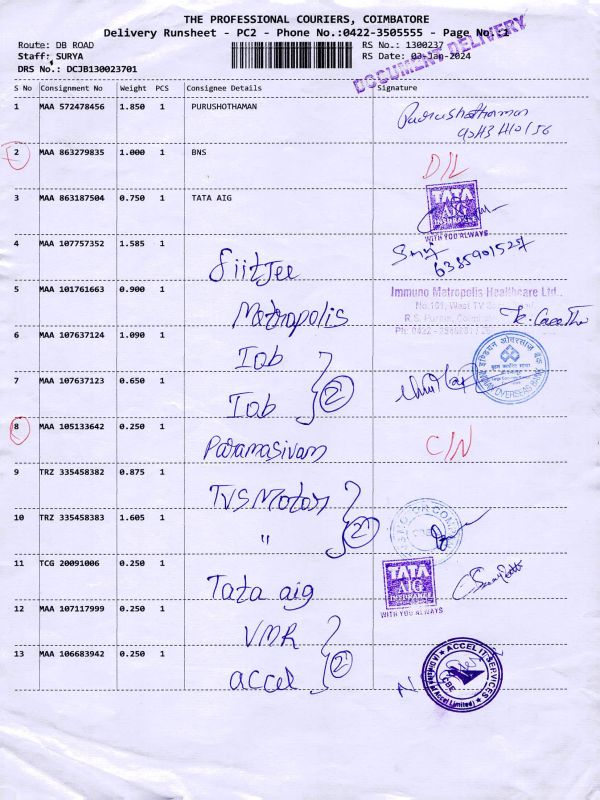 THE PROFESSIONAL COURIERS, COIMBATORE
Delivery Runsheet - PC2 - Phone No.:0422-3505555 - Page No.:1
DOCUMENT DELIVERY
Route: DB ROAD RS No.: 1300237
Staff: SURYA RS Date: 03-Jan-2024
DRS No.: DCJB130023701
S No Consignment No Weight PCS Consignee Details Signature
1 MAA 572478456 1.850 1 PURUSHOTHAMAN Purushothaman
2 MAA 863279835 1.000 1 BNS D/L
3 MAA 863187504 0.750 1 TATA AIG
TATA
AIG
INSURANCE
WITH YOU ALWAYS
4 MAA 107757352 1.585 1 Fiitjee
5 MAA 101761663 0.900 1 Metropolis
Immuno Metropolis Healthcare Ltd.,
No.101, West TV
6 MAA 107637124 1.090 1 Iob
7 MAA 107637123 0.650 1 Iob 2
INDIAN OVERSEAS BANK
8 MAA 105133642 0.250 1 Paramasivam C/N
9 TRZ 335458382 0.875 1 TVS Motor
10 TRZ 335458383 1.605 1 " 2
11 TCG 20091006 0.250 1 Tata aig
TATA
AIG
INSURANCE
WITH YOU ALWAYS
12 MAA 107117999 0.250 1 VMR
13 MAA 106683942 0.250 1 accel 2
ACCEL IT SERVICES
CBE